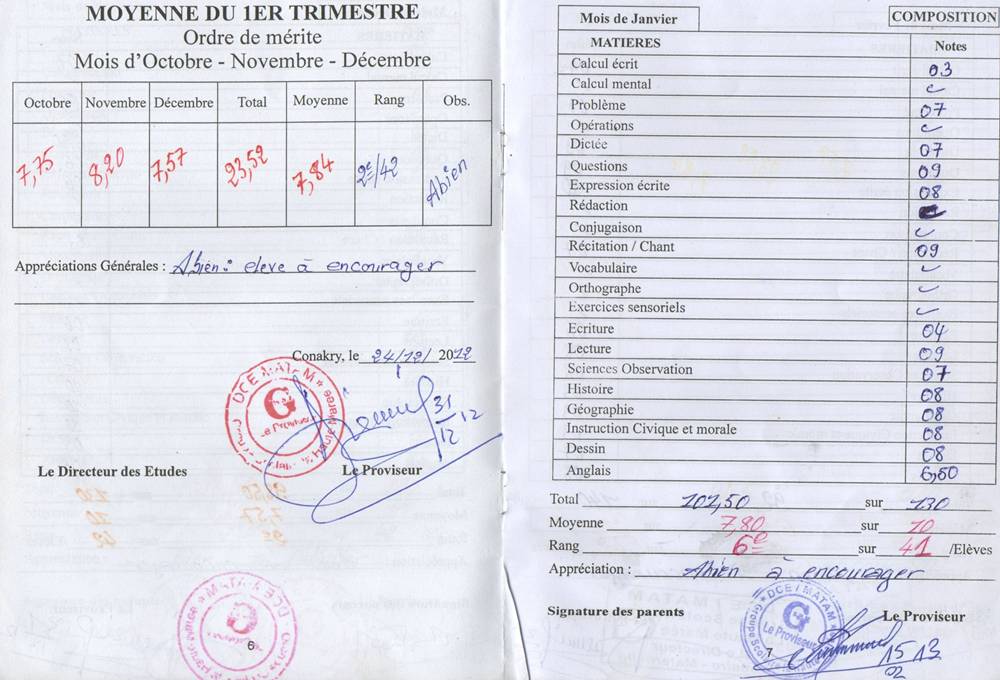 MOYENNE DU 1ER TRIMESTRE
Ordre de mérite
Mois d'Octobre - Novembre - Décembre
Octobre Novembre Décembre Total Moyenne Rang Obs.
7,75 8,20 7,57 23,52 7,84 2e/42 Abien
Appréciations Générales : Abien: eleve à encourager
Conakry, le 24/12/ 2012
DCE MATAM
G
Le Proviseur
31
12 12
Le Directeur des Etudes Le Proviseur
6
Mois de Janvier COMPOSITION
MATIERES Notes
Calcul écrit 03
Calcul mental
Problème 07
Opérations
Dictée 07
Questions 09
Expression écrite 08
Rédaction
Conjugaison
Récitation / Chant 09
Vocabulaire
Orthographe
Exercices sensoriels
Ecriture 04
Lecture 09
Sciences Observation 07
Histoire 08
Géographie 08
Instruction Civique et morale 08
Dessin 08
Anglais 6,50
Total 101,50 sur 130
Moyenne 7,80 sur 10
Rang 6e sur 41 /Elèves
Appréciation : Abien à encourager
Signature des parents Le Proviseur
DCE / MATAM
G
Le Proviseur
15 13
02
7